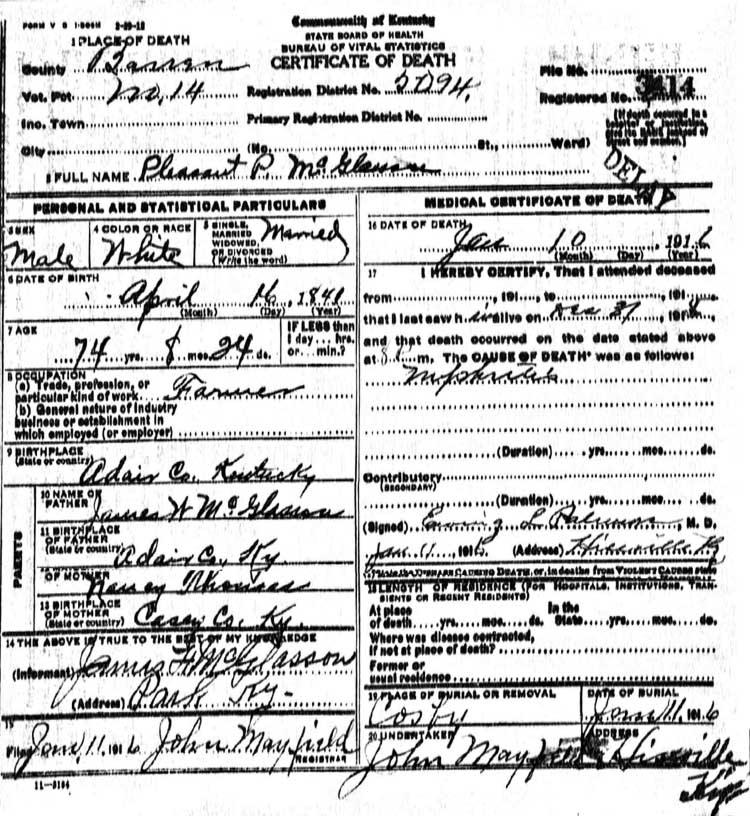 FORM V S 1-50M 2-29-12
Commonwealth of Kentucky
STATE BOARD OF HEALTH
BUREAU OF VITAL STATISTICS
CERTIFICATE OF DEATH
1 PLACE OF DEATH
County Barren
Vot. Pct No. 14
Inc. Town
City (No. St., Ward)
Registration District No.
Primary Registration District No.
File No.
Registered No.
(If death occurred in a hospital or institution, give its NAME instead of street and number.)
2 FULL NAME Pleasant P. McGlasson
PERSONAL AND STATISTICAL PARTICULARS
3 SEX
Male
4 COLOR OR RACE
White
5 SINGLE, MARRIED WIDOWED, OR DIVORCED (Write the word)
Married
6 DATE OF BIRTH
April 16, 1841
(Month) (Day) (Year)
7 AGE
74 yrs. 8 mos. 24 ds.
IF LESS than 1 day... hrs. or... min.?
8 OCCUPATION
(a) Trade, profession, or particular kind of work Farmer
(b) General nature of industry business or establishment in which employed (or employer)
9 BIRTHPLACE
(State or country)
Adair Co. Kentucky
PARENTS
10 NAME OF FATHER
James W McGlasson
11 BIRTHPLACE OF FATHER
(State or country)
Adair Co., Ky
OF MOTHER
Nancy Thomas
13 BIRTHPLACE OF MOTHER
(State or country)
Casey Co. Ky.
14 THE ABOVE IS TRUE TO THE BEST OF MY KNOWLEDGE
(Informant) James McGlasson
(Address) Park Ky-
15
Filed Jan, 11, 1916 John Mayfield
REGISTRAR
11-3184
MEDICAL CERTIFICATE OF DEATH
DELAY
16 DATE OF DEATH
Jan 10, 1916
(Month) (Day) (Year)
17 I HEREBY CERTIFY, That I attended deceased
from , 191 , to , 191
that I last saw h im alive on Dec 31, 191
and that death occurred on the date stated above
at m. The CAUSE OF DEATH* was as follows:
Nephritis
(Duration) yrs. mos. ds.
Contributory
(SECONDARY)
(Duration) yrs. mos. ds.
(Signed) , M. D.
Jan. 11 1916 (Address) Hiseville Ky
CAUSING DEATH, or, in deaths from VIOLENT CAUSES state
18 LENGTH OF RESIDENCE (FOR HOSPITALS, INSTITUTIONS, TRANSIENTS OR RECENT RESIDENTS)
At place of death yrs. mos. ds. In the State yrs. mos. ds.
Where was disease contracted, if not at place of death?
Former or usual residence
19 PLACE OF BURIAL OR REMOVAL
Cosby
DATE OF BURIAL
Jan 11, 1916
20 UNDERTAKER
John Mayfield
ADDRESS
Hiseville Ky